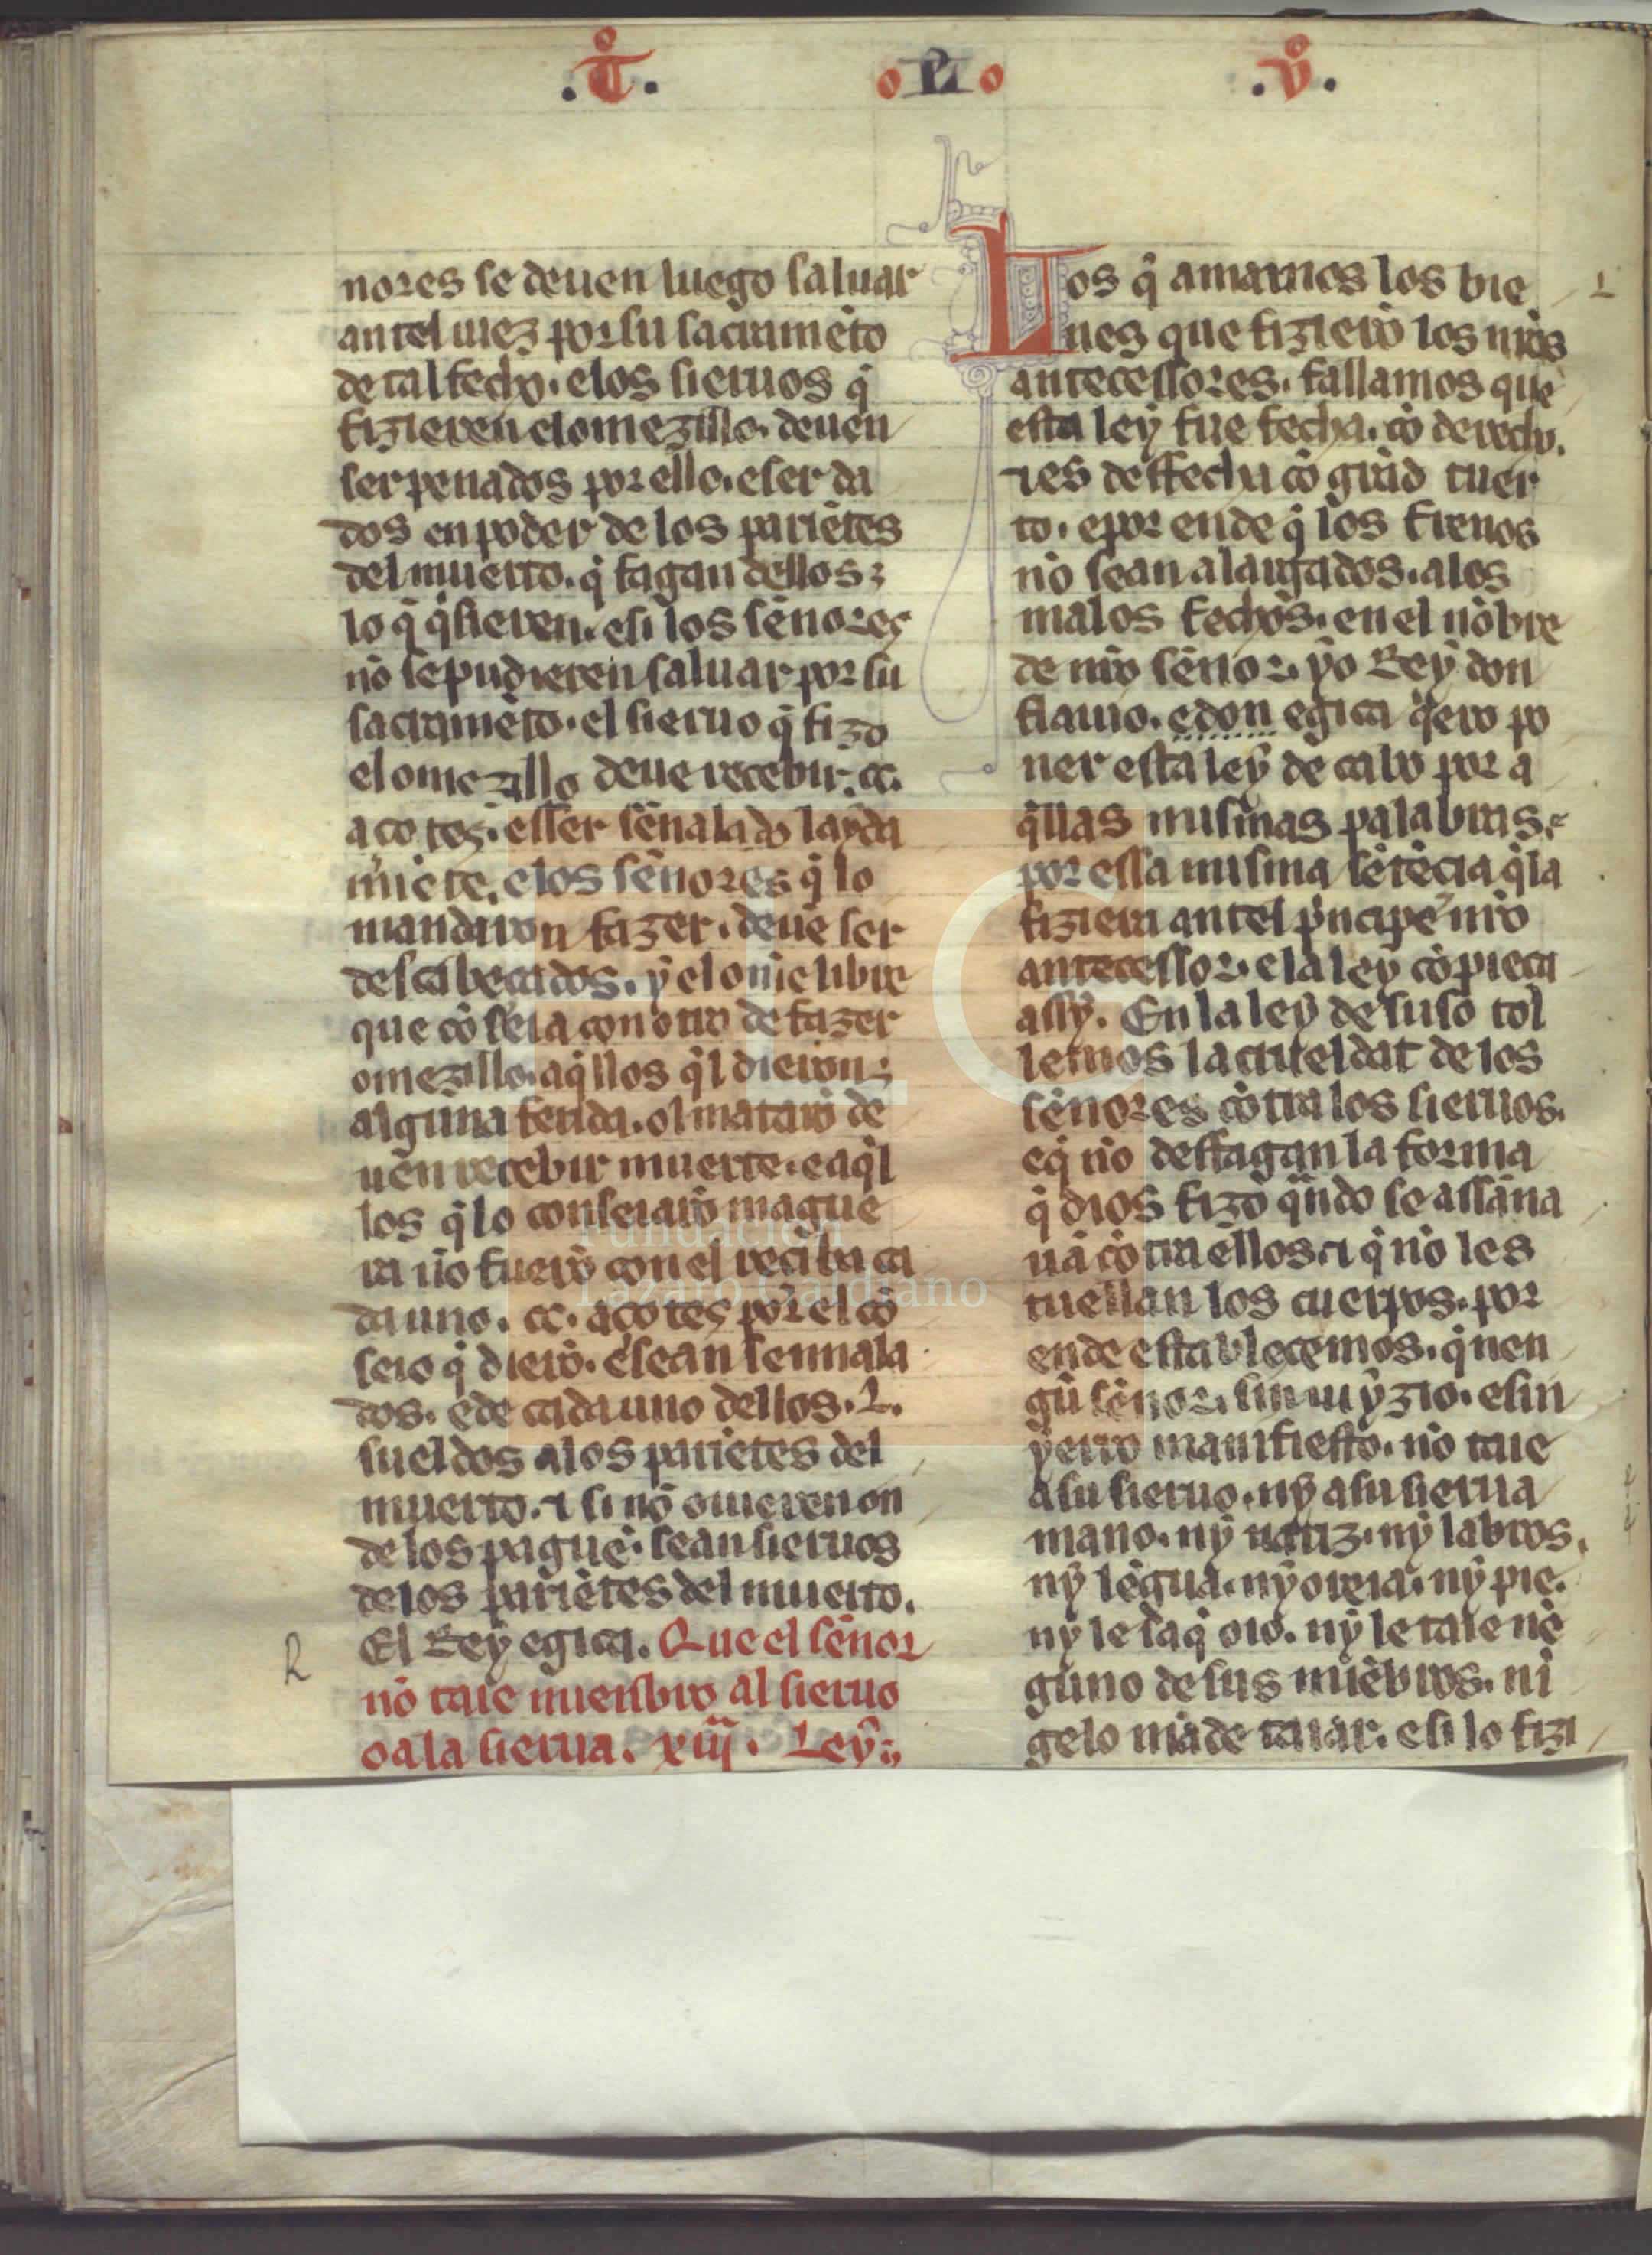 .Tº. o VI o .vº.
nores se deuen luego saluar
antel iuez por su sacramẽto
de tal fecho. e los sieruos q̃
fizieren el omezillo. deuen
ser penados por ello. e ser da
dos en poder de los pariẽtes
del muerto. q̃ fagan dellos
lo q̃ q̃sieren. e si los señores
nõ se pudieren saluar por su
sacramẽto. el sieruo q̃ fizo
el omezillo deue recebir .cc.
açotes. esser señalado layda
miẽte. e los señores q̃ lo
mandaron fazer. deuẽ ser
descabeçados. ẏ el omẽ libre
que cõseia con otro de fazer
omezillo. aq̃llos q̃l dieron
alguna ferida. ol matarõ de
uen recebir muerte. e aq̃l
los q̃ lo conseiarõ mague
ra nõ fuerõ con el reciba ca
da uno .cc. açotes por el cõ
seio q̃ dierõ. e sean sennala
dos. e de cada uno dellos .L.
sueldos a los pariẽtes del
muerto. ⁊ si nõ ouieren on
de los paguẽ. sean sieruos
de los pariẽtes del muerto.
El Reẏ egica. Que el señor
nõ taie miembro al sieruo
o a la sierua. xiij. Leẏ
R
Los q̃ amamos los bie
nes que fizierõ los nr̃os
antecessores. fallamos que
esta leẏ fue fecha. cõ derecho.
⁊ es desfecha cõ grãd tuer
to. e por ende q̃ los frenos
nõ sean alargados. a los
malos fechos. en el nõbre
de nr̃o señor. ẏo Reẏ don
flauio. e don egica q̃ero po
ner esta leẏ de cabo por a
q̃llas mismas palabras. e
por essa misma sẽtẽcia q̃ la
fiziera antel prĩcipe nr̃o
antecessor. e la leẏ cõpieça
assẏ. En la leẏ de suso tol
lemos la crueldat de los
señores cõtra los sieruos.
e q̃ nõ desfagan la forma
q̃ dios fizo q̃ndo se assãna
uã cõtra ellos. ⁊ q̃ nõ les
tuellan los cuerpos. por
ende establecemos. q̃ nen
gũ señor. sin iuẏzio. e sin
ẏerro manifiesto. nõ taie
a su sieruo. nẏ a su sierua
mano. nẏ nariz. nẏ labros.
nẏ lẽgua. nẏ oreia. nẏ pie.
nẏ le saq̃ oio. nẏ le taie nẽ
guno de sus miẽbros. ni
gelo mãde taiar. e si lo fizi
FLG
Fundación
Lázaro Galdiano